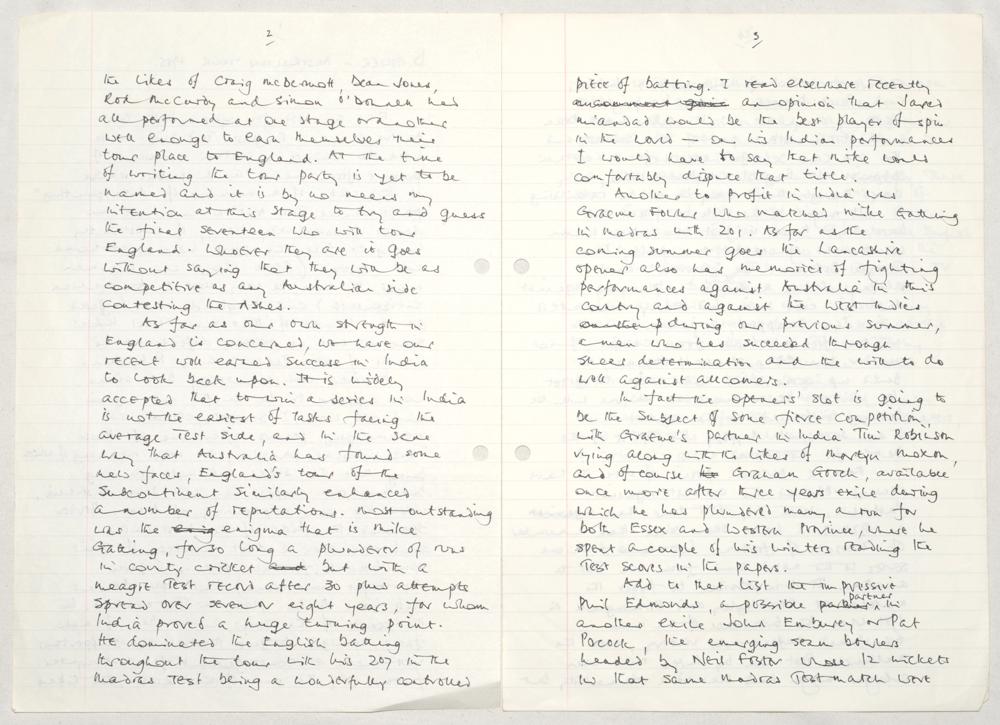 2
the likes of Craig McDermott, Dean Jones,
Rod McCurdy and Simon O'Donnell had
all performed at one stage or another
well enough to earn themselves their
tour place to England. At the time
of writing the tour party is yet to be
named and it is by no means my
intention at this stage to try and guess
the final seventeen who will tour
England. Whoever they are it goes
without saying that they will be as
competitive as any Australian side
contesting the Ashes.
As far as our own strength in
England is concerned, we have our
recent well earned success in India
to look back upon. It is widely
accepted that to win a series in India
is not the easiest of tasks facing the
average Test side, and in the same
way that Australia has found some
new faces, England's tour of the
Subcontinent similarly enhanced
a number of reputations. Most outstanding
was the enig enigma that is Mike
Gatting, for so long a plunderer of runs
in county cricket and but with a
meagre Test record after 30 plus attempts
spread over seven or eight years, for whom
India proved a huge turning point.
He dominated the English batting
throughout the tour with his 207 in the
Madras Test being a wonderfully controlled
3
piece of batting. I read elsewhere recently
an opinion that Javed
Miandad would be the best player of spin
in the world – on his Indian performances
I would have to say that Mike would
comfortably dispute that title.
Another to profit in India was
Graeme Fowler who matched Mike Gatting
in Madras with 201. As far as the
coming summer goes the Lancashire
opener also has memories of fighting
performances against Australia in this
country and against the West Indies
during our previous summer,
a man who has succeeded through
sheer determination and the will to do
well against all comers.
In fact the openers' slot is going to
be the subject of some fierce competition,
with Graeme's partner in India Tim Robinson
vying along with the likes of Martyn Moxon,
and of course Graham Gooch, available
once more after three years exile during
which he has plundered many a run for
both Essex and Western Province, where he
spent a couple of his winters reading the
Test scores in the papers.
Add to that list the impressive
Phil Edmonds, a possible partner partner, in
another exile John Emburey or Pat
Pocock, the emerging seam bowlers
headed by Neil Foster whose 12 wickets
in that same Madras Test match were